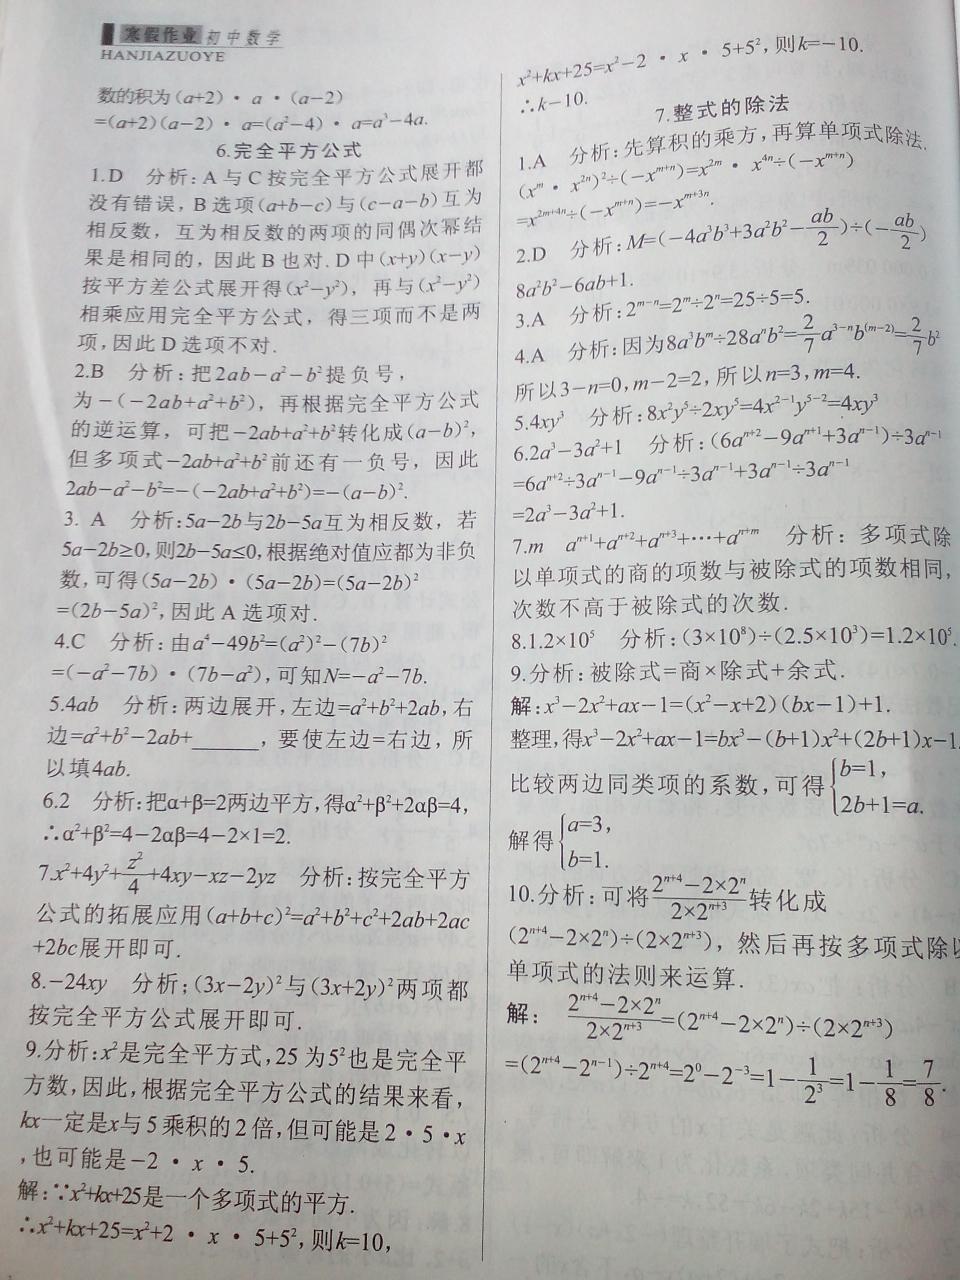 寒假作业 初中数学
HANJIAZUOYE
数的积为(a+2)·a·(a−2)
=(a+2)(a−2)·a=(a²−4)·a=a³−4a.
6.完全平方公式
1.D 分析:A与C按完全平方公式展开都
没有错误,B选项(a+b−c)与(c−a−b)互为
相反数,互为相反数的两项的同偶次幂结
果是相同的,因此B也对.D中(x+y)(x−y)
按平方差公式展开得(x²−y²),再与(x²−y²)
相乘应用完全平方公式,得三项而不是两
项,因此D选项不对.
2.B 分析:把2ab−a²−b²提负号,
为−(−2ab+a²+b²),再根据完全平方公式
的逆运算,可把−2ab+a²+b²转化成(a−b)²,
但多项式−2ab+a²+b²前还有一负号,因此
2ab−a²−b²=−(−2ab+a²+b²)=−(a−b)².
3. A 分析:5a−2b与2b−5a互为相反数,若
5a−2b≥0,则2b−5a≤0,根据绝对值应都为非负
数,可得(5a−2b)·(5a−2b)=(5a−2b)²
=(2b−5a)²,因此A选项对.
4.C 分析:由a⁴−49b²=(a²)²−(7b)²
=(−a²−7b)·(7b−a²),可知N=−a²−7b.
5.4ab 分析:两边展开,左边=a²+b²+2ab,右
边=a²+b²−2ab+______,要使左边=右边,所
以填4ab.
6.2 分析:把α+β=2两边平方,得α²+β²+2αβ=4,
∴α²+β²=4−2αβ=4−2×1=2.
7.x²+4y²+z²/4+4xy−xz−2yz 分析:按完全平方
公式的拓展应用(a+b+c)²=a²+b²+c²+2ab+2ac
+2bc展开即可.
8.−24xy 分析;(3x−2y)²与(3x+2y)²两项都
按完全平方公式展开即可.
9.分析:x²是完全平方式,25为5²也是完全平
方数,因此,根据完全平方公式的结果来看,
kx一定是x与5乘积的2倍,但可能是2·5·x
,也可能是−2·x·5.
解:∵x²+kx+25是一个多项式的平方.
∴x²+kx+25=x²+2·x·5+5²,则k=10,
x²+kx+25=x²−2·x·5+5²,则k=−10.
∴k−10.
7.整式的除法
1.A 分析:先算积的乘方,再算单项式除法.
(xᵐ·x²ⁿ)²÷(−xᵐ⁺ⁿ)=x²ᵐ·x⁴ⁿ÷(−xᵐ⁺ⁿ)
=x²ᵐ⁺⁴ⁿ÷(−xᵐ⁺ⁿ)=−xᵐ⁺³ⁿ.
2.D 分析:M=(−4a³b³+3a²b²−ab/2)÷(−ab/2)
8a²b²−6ab+1.
3.A 分析:2ᵐ⁻ⁿ=2ᵐ÷2ⁿ=25÷5=5.
4.A 分析:因为8a³bᵐ÷28aⁿb²=2/7a³⁻ⁿb⁽ᵐ⁻²⁾=2/7b²
所以3−n=0,m−2=2,所以n=3,m=4.
5.4xy³ 分析:8x²y⁵÷2xy⁵=4x²⁻¹y⁵⁻²=4xy³
6.2a³−3a²+1 分析:(6aⁿ⁺²−9aⁿ⁺¹+3aⁿ⁻¹)÷3aⁿ⁻¹
=6aⁿ⁺²÷3aⁿ⁻¹−9aⁿ⁻¹÷3aⁿ⁻¹+3aⁿ⁻¹÷3aⁿ⁻¹
=2a³−3a²+1.
7.m aⁿ⁺¹+aⁿ⁺²+aⁿ⁺³+···+aⁿ⁺ᵐ 分析:多项式除
以单项式的商的项数与被除式的项数相同,
次数不高于被除式的次数.
8.1.2×10⁵ 分析:(3×10⁸)÷(2.5×10³)=1.2×10⁵.
9.分析:被除式=商×除式+余式.
解:x³−2x²+ax−1=(x²−x+2)(bx−1)+1.
整理,得x³−2x²+ax−1=bx³−(b+1)x²+(2b+1)x−1.
比较两边同类项的系数,可得{b=1,
2b+1=a.
解得{a=3,
b=1.
10.分析:可将(2ⁿ⁺⁴−2×2ⁿ)/(2×2ⁿ⁺³)转化成
(2ⁿ⁺⁴−2×2ⁿ)÷(2×2ⁿ⁺³),然后再按多项式除以
单项式的法则来运算.
解:(2ⁿ⁺⁴−2×2ⁿ)/(2×2ⁿ⁺³)=(2ⁿ⁺⁴−2×2ⁿ)÷(2×2ⁿ⁺³)
=(2ⁿ⁺⁴−2ⁿ⁻¹)÷2ⁿ⁺⁴=2⁰−2⁻³=1−1/2³=1−1/8=7/8.